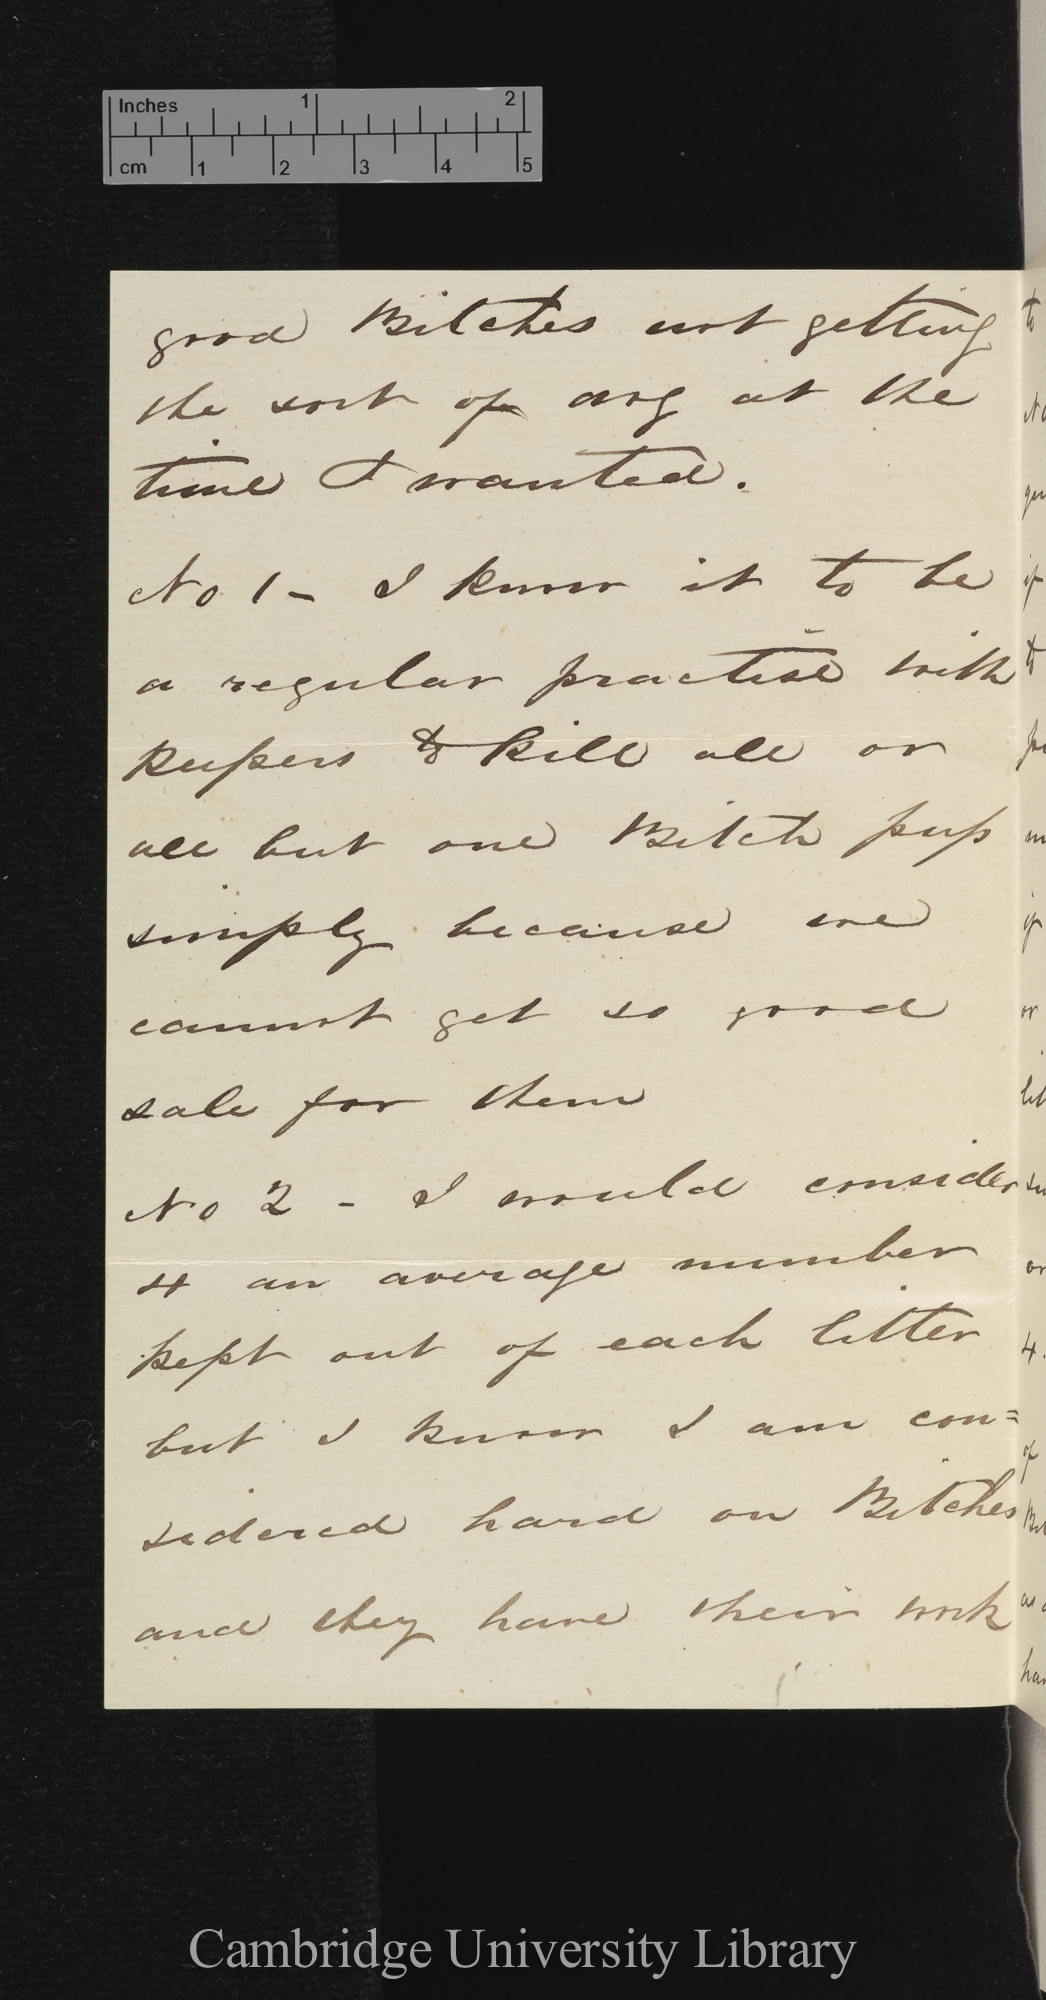 Inches 1 2
cm 1 2 3 4 5
good Bitches not getting
the sort of dog at the
time I wanted.
No 1 - I know it to be
a regular practise with
keepers to kill all or
all but one Bitch pup
simply because we
cannot get so good
sale for them
No 2 - I would consider
4 an average number
kept out of each litter
but I know I am con=
sidered hard on Bitches
and they have their work
Cambridge University Library